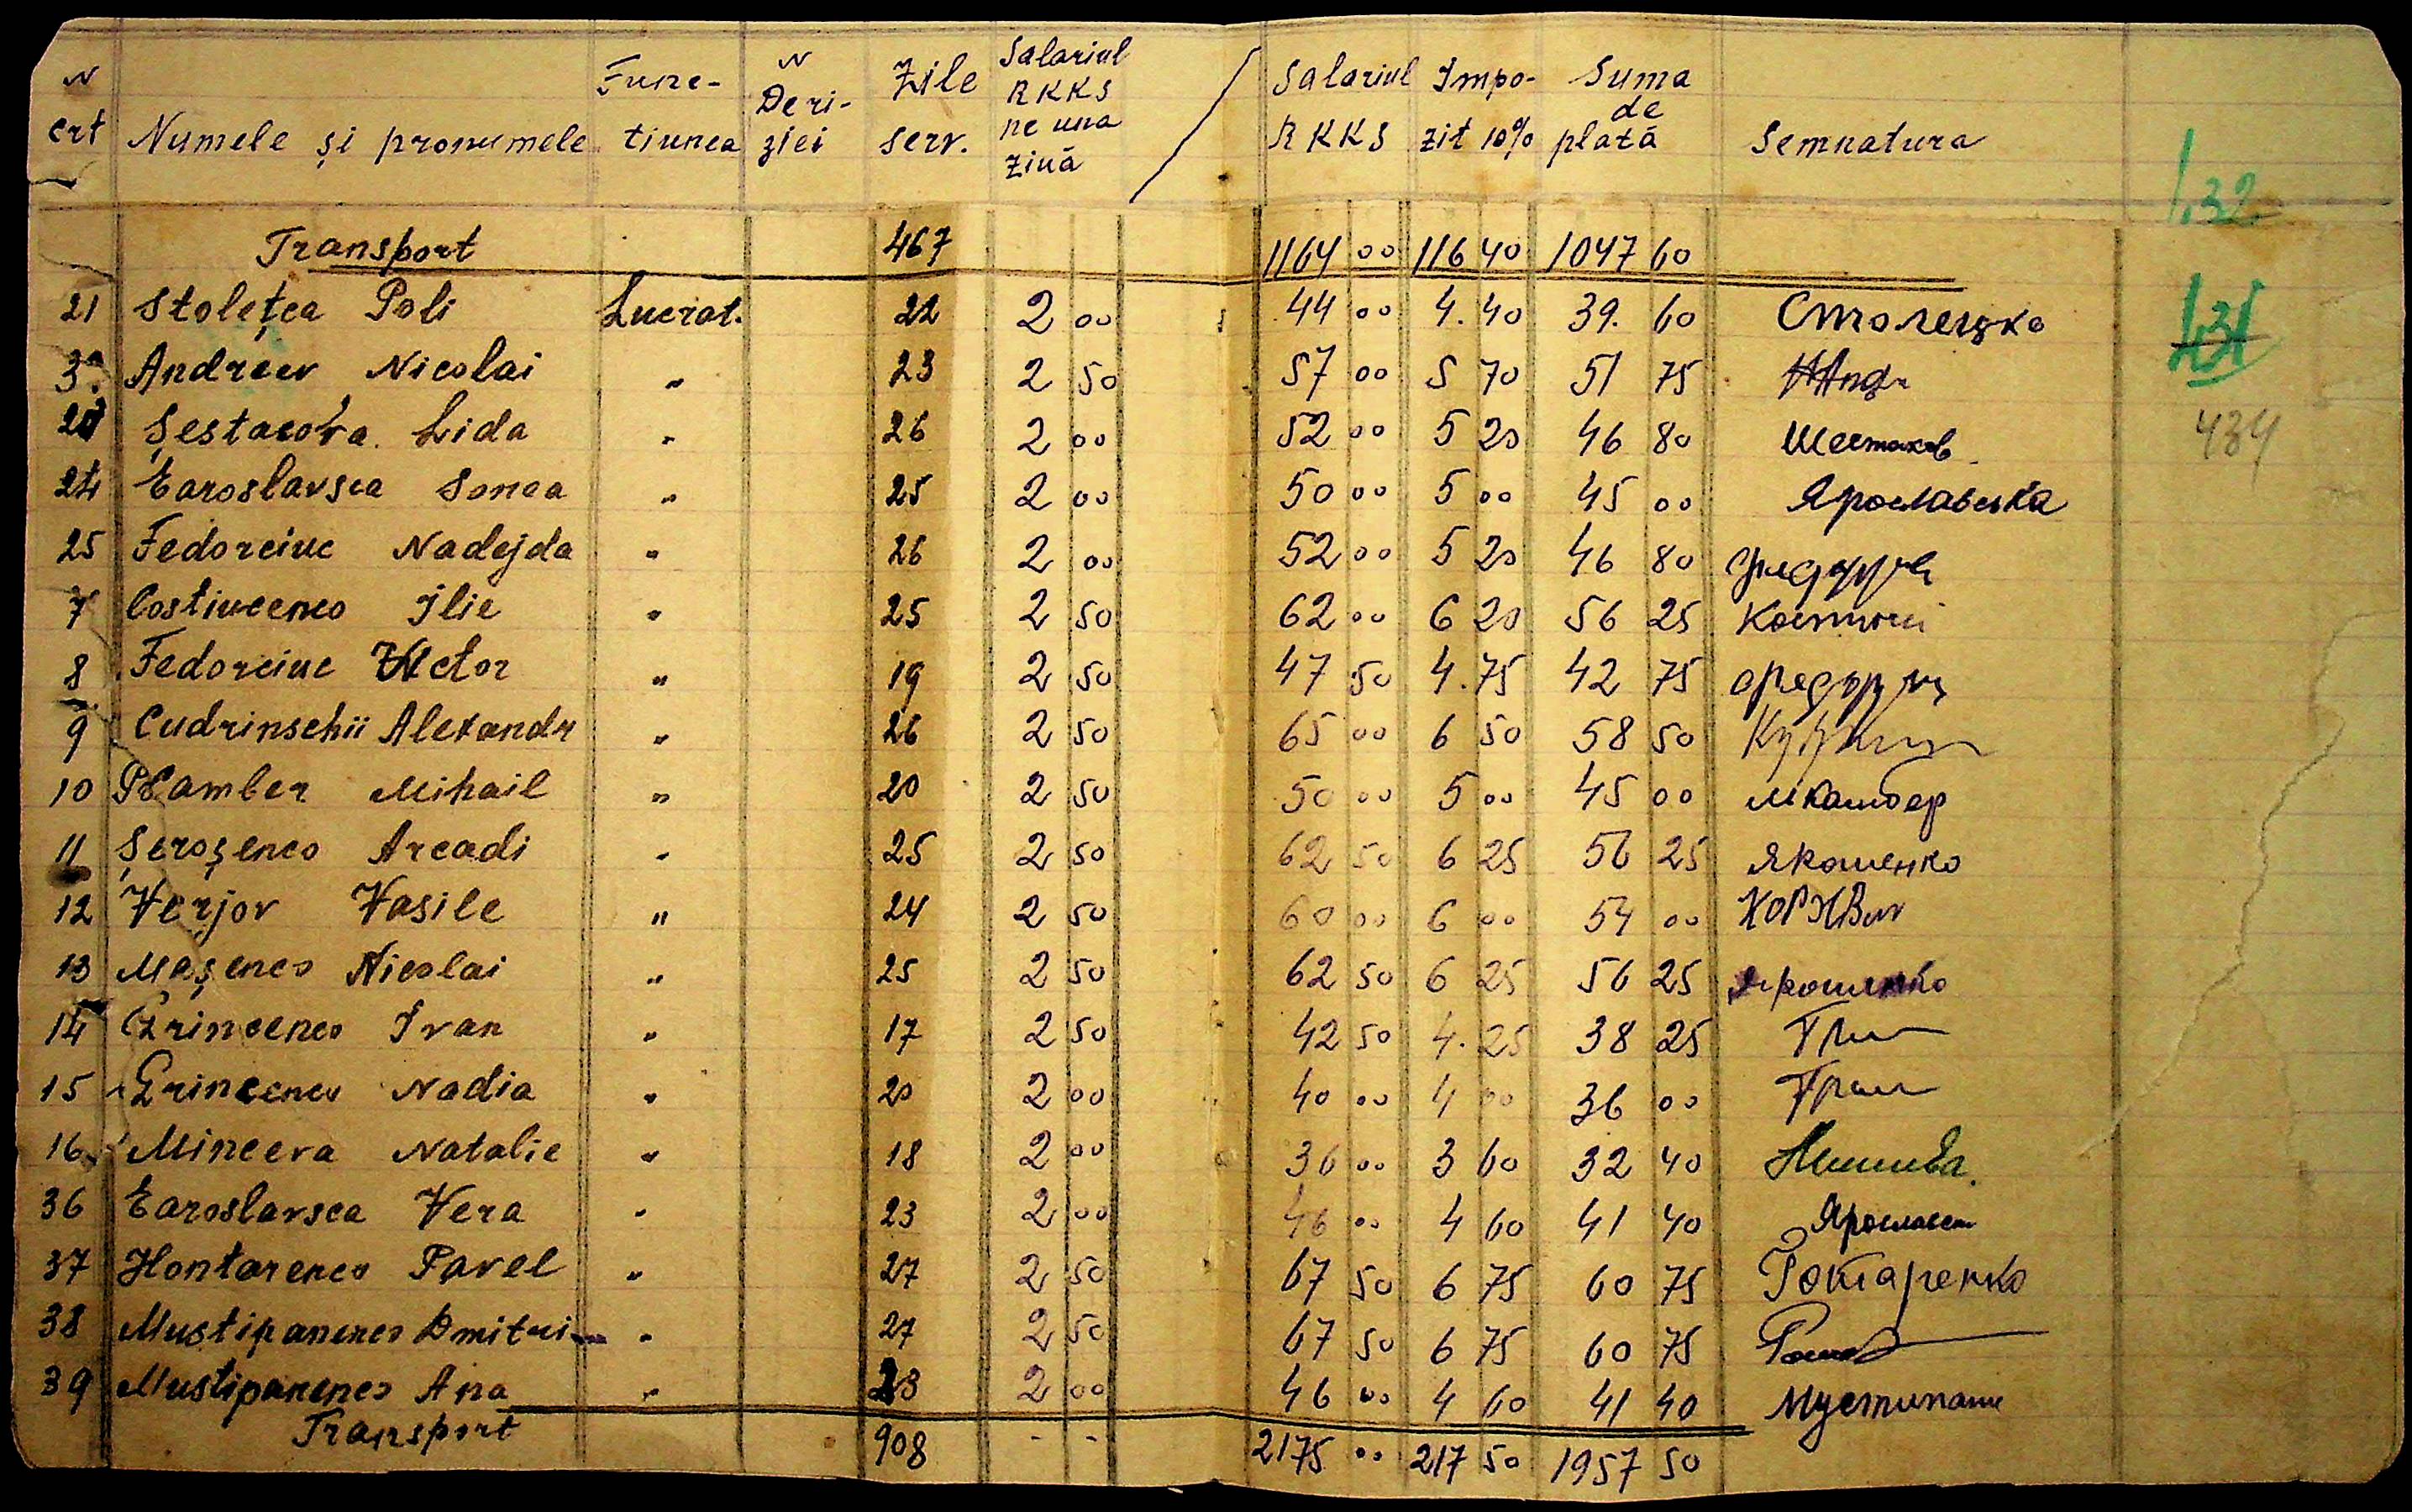 N crt Numele și pronumele Functiunea N Deciziei Zile serv. Salariul RKKS pe una ziuă Salariul RKKS Impozit 10% Suma de plată Semnatura
Transport 467 1164 00 116 40 1047 60
21 Stolețca Poli Lucrat. 22 2 00 44 00 4.40 39.60 Столецка
Andreev Nicolai " 23 2 50 57 00 5 70 51 75
Șestacova Lida " 26 2 00 52 00 5 20 46 80 Шестаков
24 Earoslavsca Sonea " 25 2 00 50 00 5 00 45 00 Ярославска
25 Fedorciuc Nadejda " 26 2 00 52 00 5 20 46 80
7 Costiucenco Ilie " 25 2 50 62 00 6 20 56 25
8 Fedorciuc Victor " 19 2 50 47 50 4.75 42 75
9 Cudrinschii Alexandr " 26 2 50 65 00 6 50 58 50
10 Mihail " 20 2 50 50 00 5 00 45 00 Мкамбер
11 Șeroșenco Arcadi " 25 2 50 62 50 6 25 56 25 Якошенко
12 Verjov Vasile " 24 2 50 60 00 6 00 54 00
13 Mașenco Nicolai " 25 2 50 62 50 6 25 56 25 Ярошенко
14 Grincenco Ivan " 17 2 50 42 50 4.25 38 25 Гри
15 Grincenco Nadia " 20 2 00 40 00 4 00 36 00 Грин
16 Minceva Natalie " 18 2 00 36 00 3 60 32 40
36 Earoslavsca Vera " 23 2 00 46 00 4 60 41 40 Ярославск
37 Hontarenco Pavel " 27 2 50 67 50 6 75 60 75 Гонтаренко
38 Mustipanenco Dmitri " 27 2 50 67 50 6 75 60 75
39 Mustipanenco Ana " 23 2 00 46 00 4 60 41 40 Мустипан
Transport 908 - - 2175 00 217 50 1957 50
132
131
434